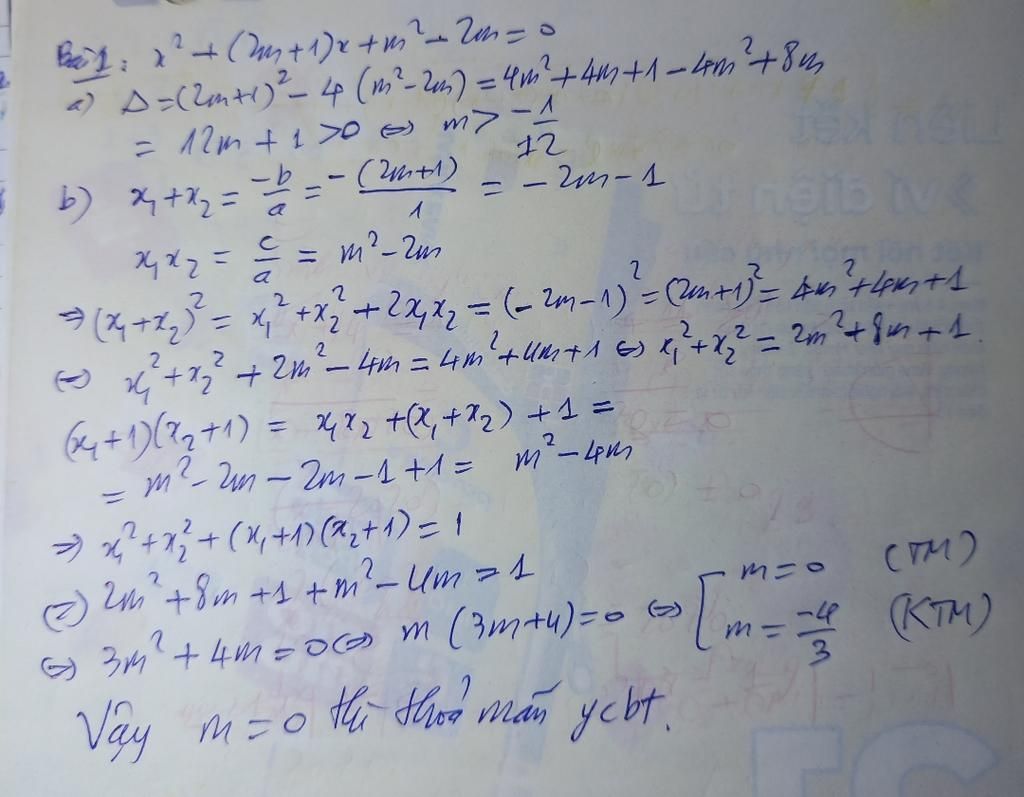 Bài 1: x² + (2m+1)x + m² - 2m = 0
a) Δ = (2m+1)² - 4(m² - 2m) = 4m² + 4m + 1 - 4m² + 8m
= 12m + 1 > 0 ⇔ m > -1/12
b) x₁ + x₂ = -b/a = -(2m+1)/1 = -2m - 1
x₁x₂ = c/a = m² - 2m
⇒ (x₁+x₂)² = x₁² + x₂² + 2x₁x₂ = (-2m-1)² = (2m+1)² = 4m² + 4m + 1
⇔ x₁² + x₂² + 2m² - 4m = 4m² + 4m + 1 ⇔ x₁² + x₂² = 2m² + 8m + 1.
(x₁+1)(x₂+1) = x₁x₂ + (x₁+x₂) + 1 =
= m² - 2m - 2m - 1 + 1 = m² - 4m
⇒ x₁² + x₂² + (x₁+1)(x₂+1) = 1
⇔ 2m² + 8m + 1 + m² - 4m = 1
⇔ 3m² + 4m = 0 ⇔ m(3m+4) = 0 ⇔ [ m = 0 (TM)
m = -4/3 (KTM)
Vậy m = 0 thì thoả mãn ycbt.
Liên kết
ví điện tử